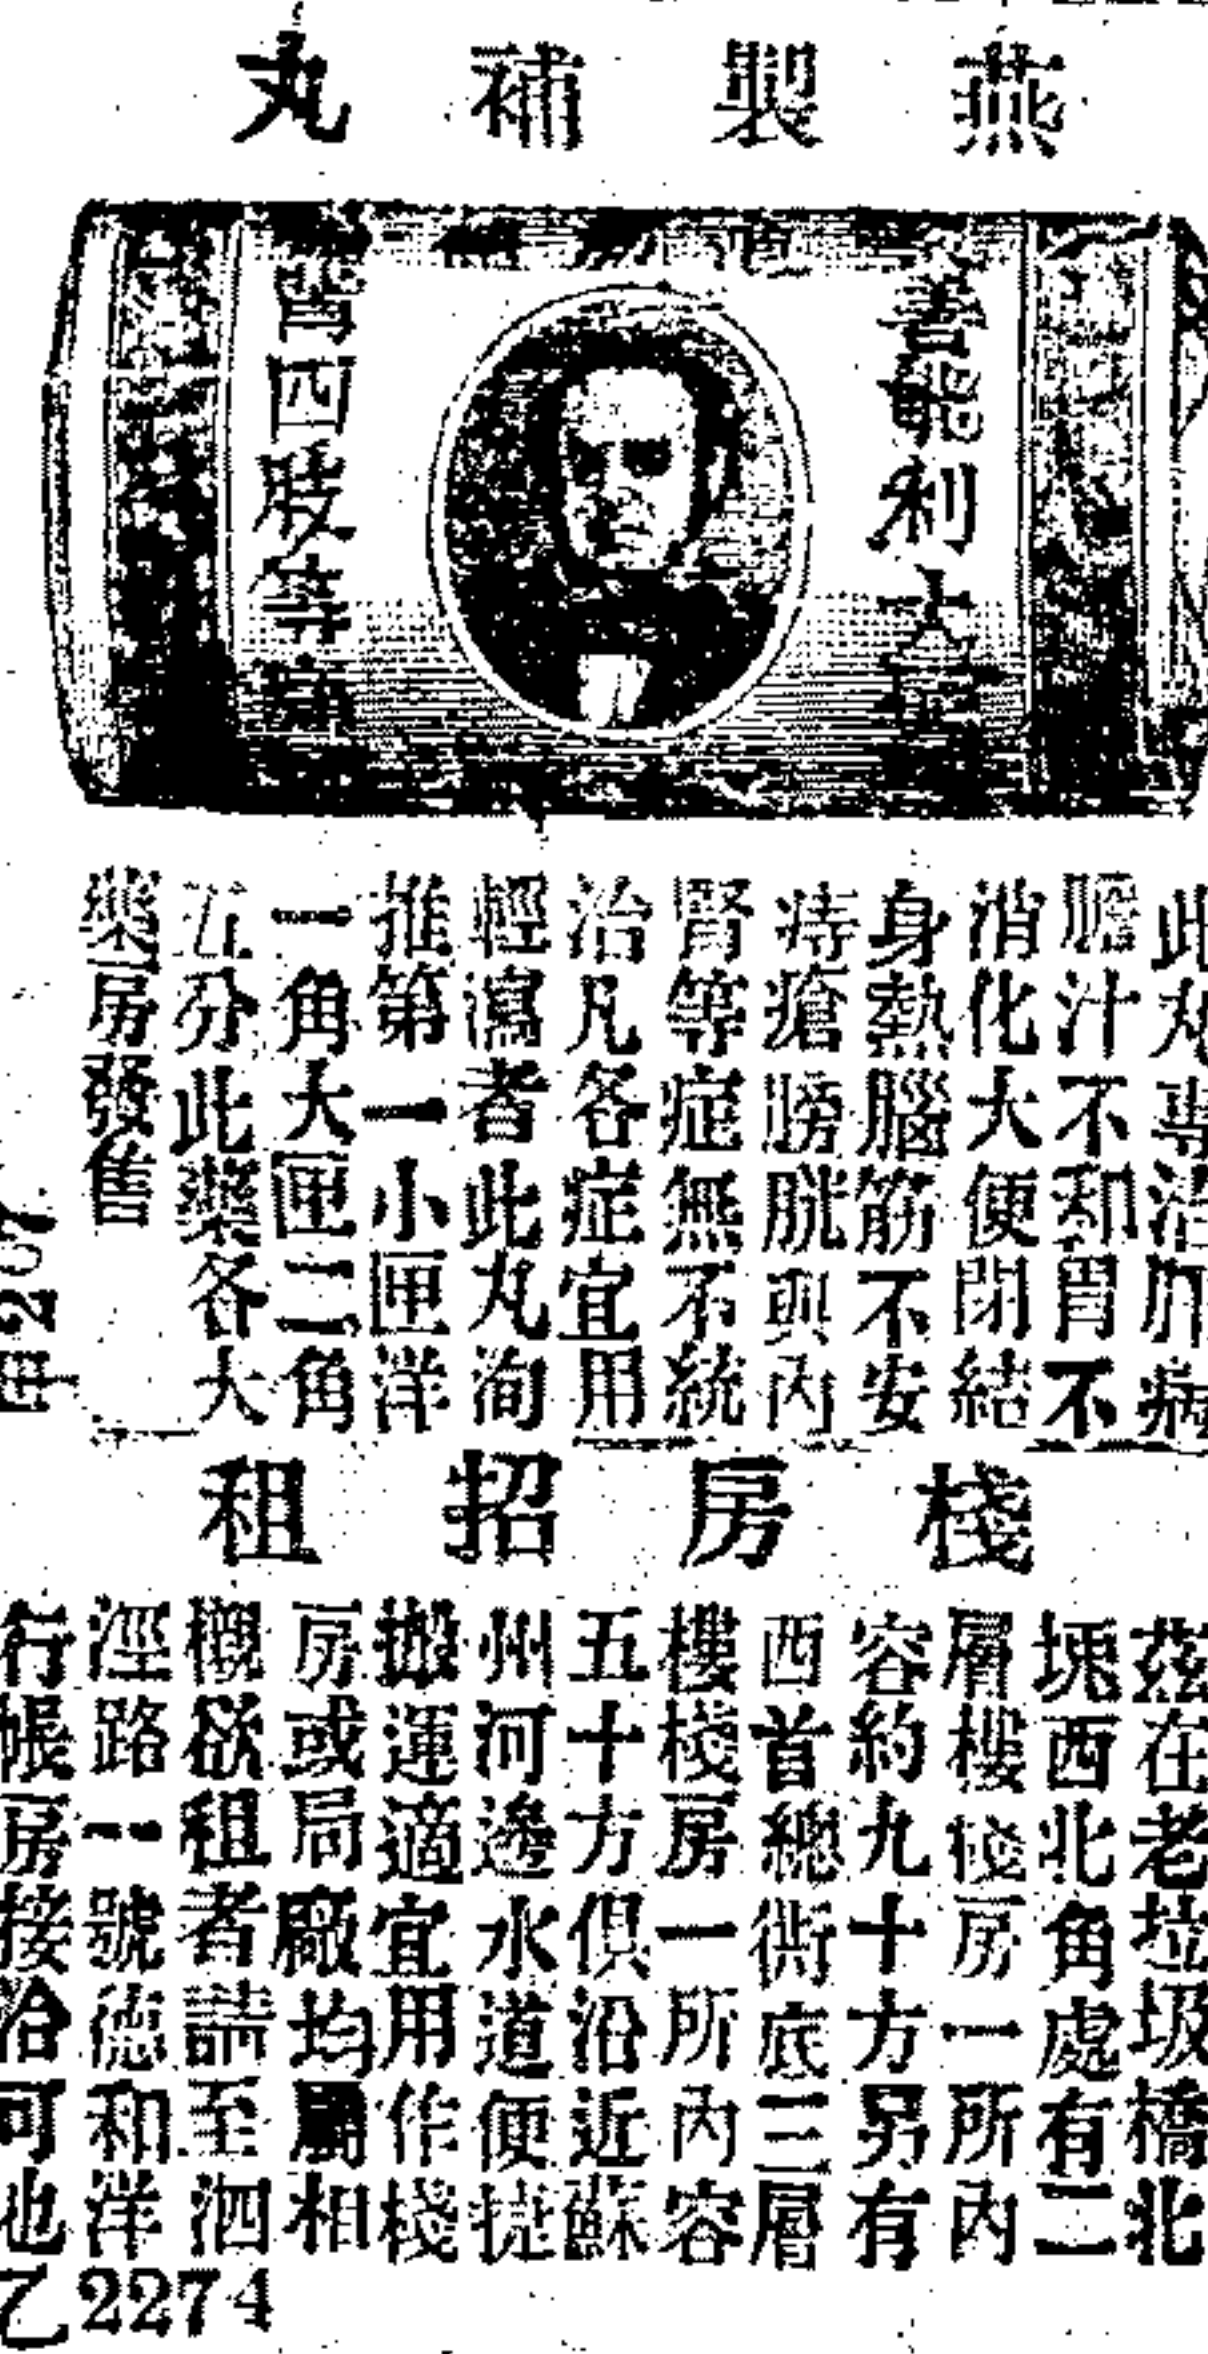 燕製補丸
善能利大便
背四肢等痛
此丸專治肝病
膽汁不和胃不
消化大便閉結
身熱腦筋不安
痔瘡膀胱與內
腎等症無不統
治凡各症宜用
輕瀉者此丸洵
推第一小匣洋
一角大匣二角
五分此藥各大
藥房發售
棧房招租
茲在老垃圾橋北
堍西北角處有二
層樓棧房一所內
容約九十方另有
西首總衖底三層
樓棧房一所內容
五十方俱沿近蘇
州河邊水道便捷
搬運適宜用作棧
房或局廠均屬相
櫬欲租者請至泗
涇路一號德和洋
行帳房接洽可也
乙2274